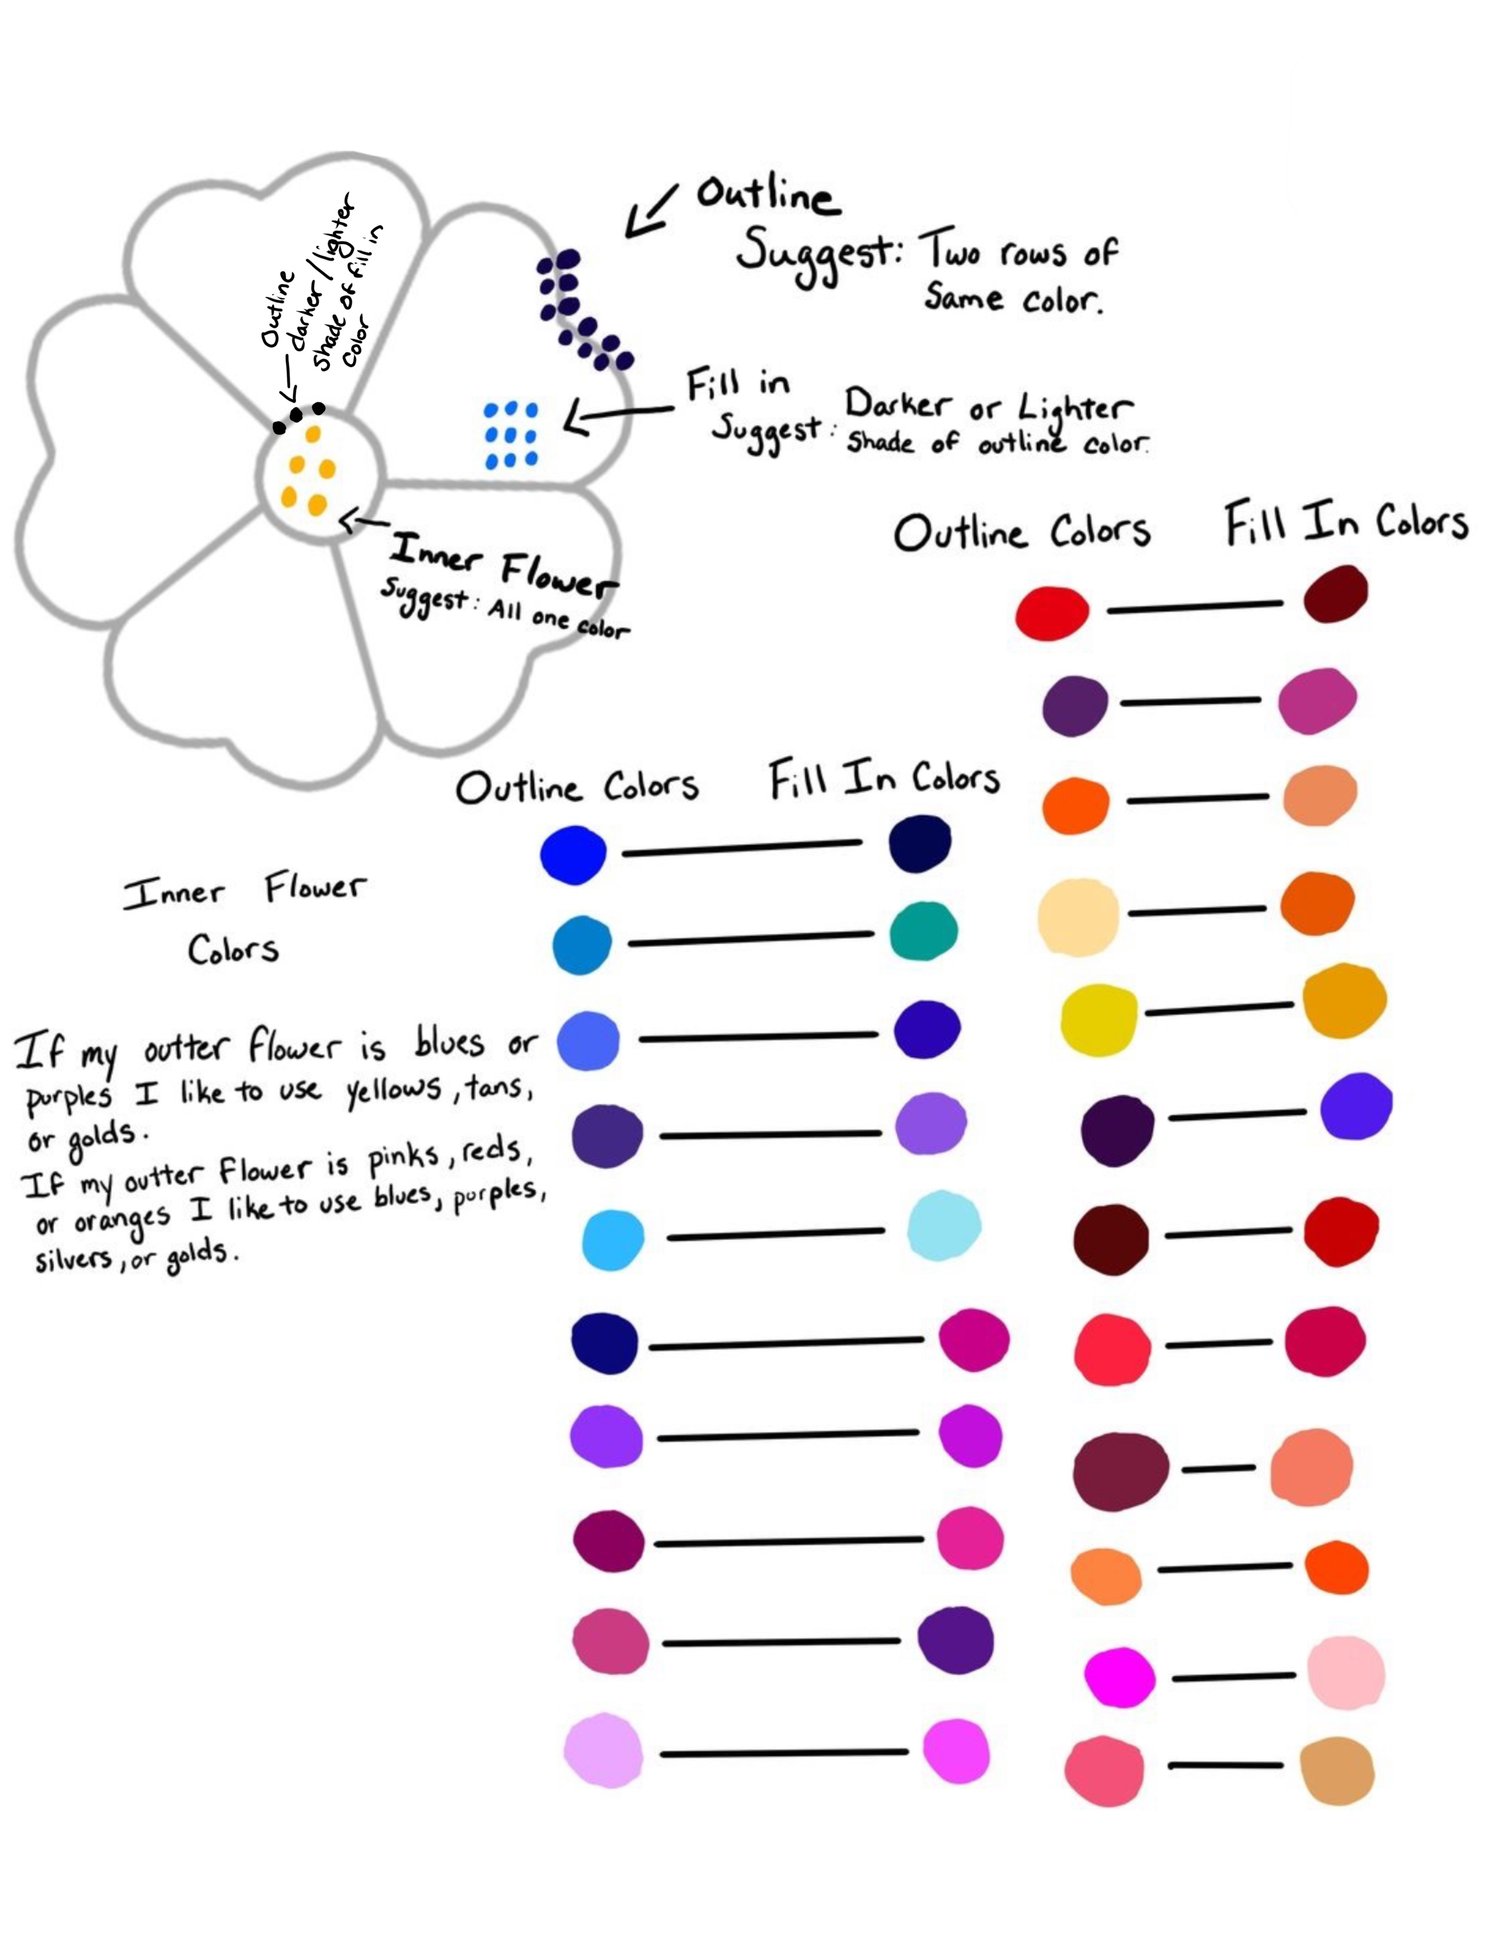 Outline
Suggest: Two rows of
Same color.
Outline
darker/lighter
shade of fill in
color
Fill in
Suggest: Darker or Lighter
Shade of outline color.
Inner Flower
Suggest: All one color
Outline Colors Fill In Colors
Outline Colors Fill In Colors
Inner Flower
Colors
If my outter flower is blues or
purples I like to use yellows, tans,
or golds.
If my outter flower is pinks, reds,
or oranges I like to use blues, purples,
silvers, or golds.